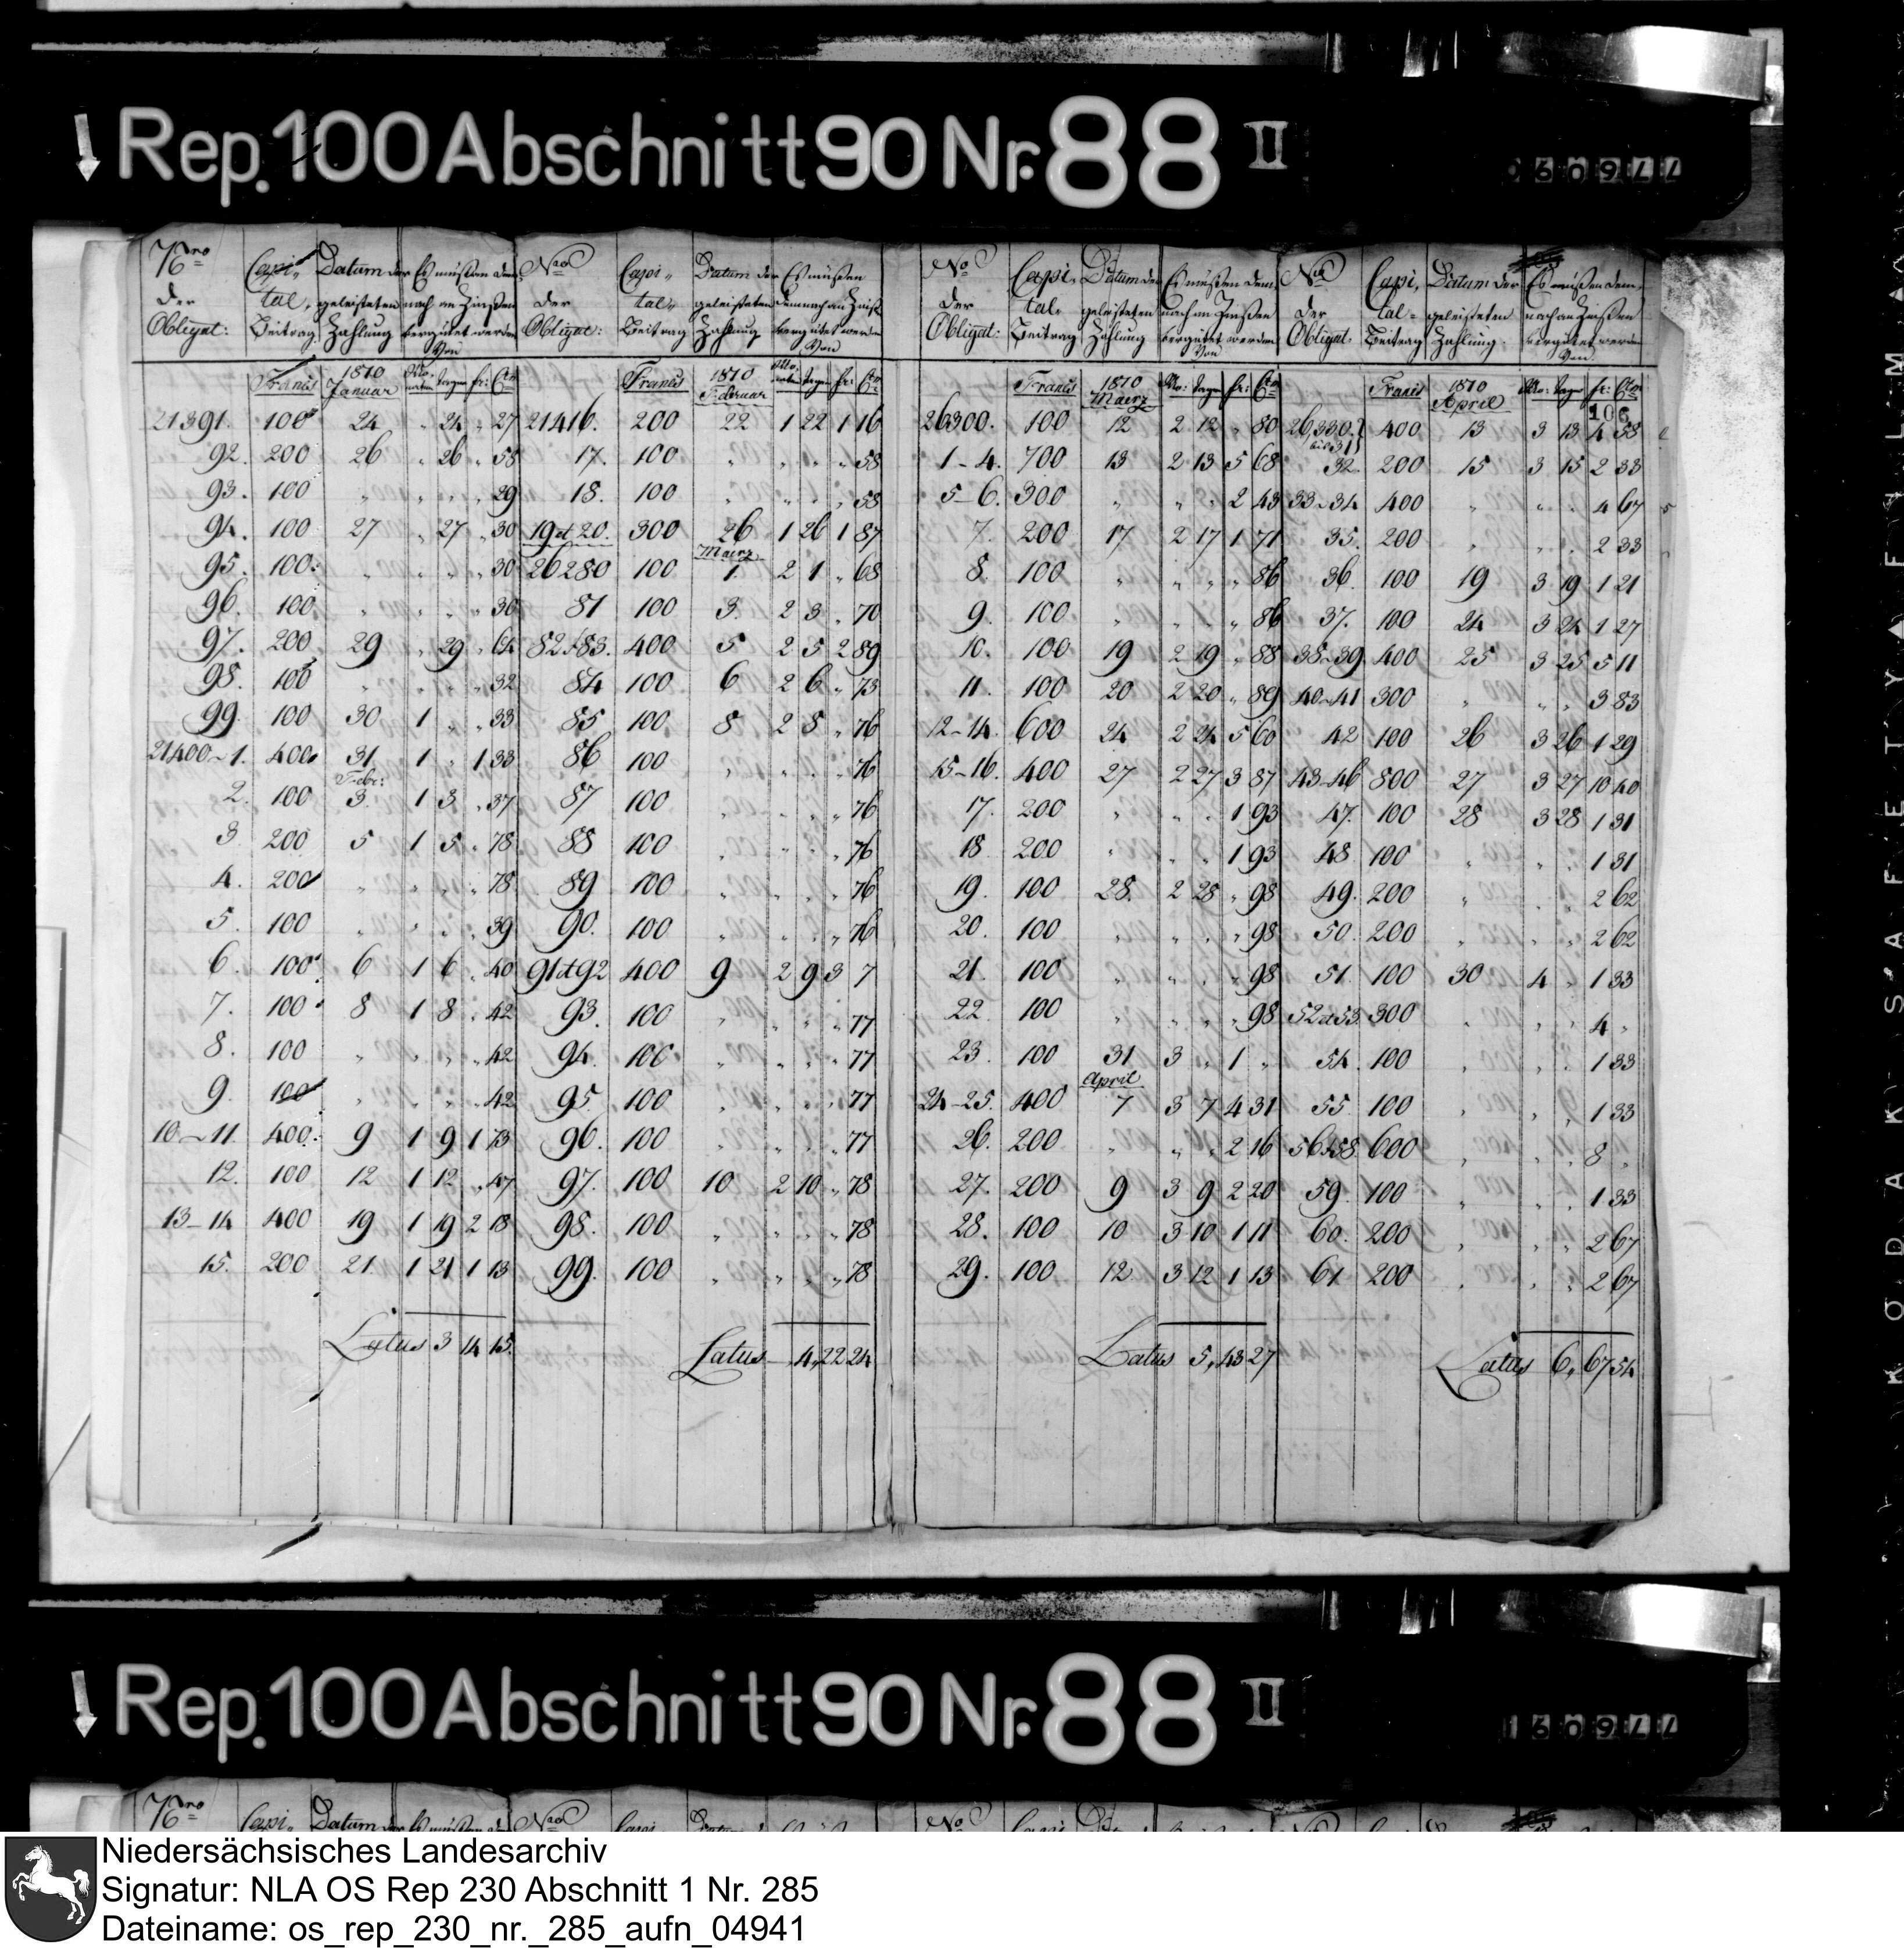 Rep. 100 Abschnitt 90 Nr. 88 II
060977
Nro der Obligat: Capital, Beitrag Datum der geleisteten Zahlung Es müßen demnach an Zinßen vergütet werden Von
Francs 1810 Januar Monaten Tagen fr: Ctm
21391. 100 24 " 24 " 27
92. 200 26 " 26 " 58
93. 100 " " " " 29
94. 100 27 " 27 " 30
95. 100 " " " " 30
96. 100 " " " " 30
97. 200 29 " 29 " 64
98. 100 " " " " 32
99. 100 30 1 " " 33
21400-1. 400 31 1 " 1 33
Febr:
2. 100 3. 1 3 " 37
3 200 5 1 5 " 78
4. 200 " " " " 78
5. 100 " " " " 39
6. 100 6 1 6 " 40
7. 100 8 1 8 " 42
8. 100 " " " " 42
9. 100 " " " " 42
10-11. 400 9 1 9 1 73
12. 100 12 1 12 " 47
13-14 400 19 1 19 2 18
15. 200 21. 1 21 1 13
Latus 3 14 15.
Nro der Obligat: Capital, Beitrag Datum der geleisteten Zahlung Es müßen demnach an Zinß vergütet werden Von
Francs 1810 Februar Monaten Tagen fr: Ctm
21416. 200 22 1 22 1 16
17. 100 " " " " 58
18. 100 " " " " 58
19 et 20. 300 26 1 26 1 87
Maerz
26280 100 1. 2 1 " 68
81 100 3. 2 3 " 70
82 et 83. 400 5 2 5 2 89
84 100 6 2 6 " 73
85 100 8 2 8 " 76
86 100 " " " " 76
87 100 " " " " 76
88 100 " " " " 76
89 100 " " " " 76
90. 100 " " " " 76
91 et 92 400 9 2 9 3 7
93. 100 " " " " 77
94. 100 " " " " 77
95. 100 " " " " 77
96. 100 " " " " 77
97. 100 10 2 10 " 78
98. 100 " " " " 78
99. 100 " " " " 78
Latus 4,22 24
No der Obligat: Capital, Beitrag Datum der geleisteten Zahlung Es müßen demnach an Zinßen vergütet werden Von
Francs 1810 Maerz Mo: Tagen fr: Ctm
26300. 100 12 2 12 " 80
1-4. 700 13 2 13 5 68
5-6. 300 " " " 2 43
7. 200 17 2 17 1 71
8. 100 " " " " 86
9. 100 " " " " 86
10. 100 19 2 19 " 88
11. 100 20 2 20 " 89
12-14. 600 24 2 24 5 60
15-16. 400 27 2 27 3 87
17. 200 " " " 1 93
18 200 " " " 1 93
19. 100 28. 2 28 " 98
20. 100 " " " " 98
21. 100 " " " " 98
22. 100 " " " " 98
23. 100 31 3 " 1 "
April
24-25. 400 7 3 7 4 31
26. 200 " " " 2 16
27. 200 9 3 9 2 20
28. 100 10 3 10 1 11
29. 100 12 3 12 1 13
Latus 5,43 27
Nro der Obligat. Capital Beitrag Datum der geleisteten Zahlung. Es müßen demnach an Zinßen vergütet werden Von
Francs 1810 April Mo: Tagen fr: Ctm
106
26330. bis 31 400 13 3 13 4 58
32. 200 15 3 15 2 33
33-34 400 " " " 4 67
35. 200 " " " 2 33
36. 100 19 3 19 1 21
37. 100 24 3 24 1 27
38-39 400 25 3 25 5 11
40-41 300 " " " 3 83
42 100 26 3 26 1 29
43-46 800 27 3 27 10 40
47. 100 28 3 28 1 31
48 100 " " " 1 31
49. 200 " " " 2 62
50. 200 " " " 2 62
51. 100 30 4 " 1 33
52 et 53. 300 " " " 4 "
54. 100 " " " 1 33
55 100 " " " 1 33
56-58 600 " " " 8 "
59. 100 " " " 1 33
60. 200 " " " 2 67
61 200 " " " 2 67
Latus 6, 67 54
Rep. 100 Abschnitt 90 Nr. 88 II
160977
Niedersächsisches Landesarchiv
Signatur: NLA OS Rep 230 Abschnitt 1 Nr. 285
Dateiname: os_rep_230_nr._285_aufn_04941
KODAK SAFETY FILM